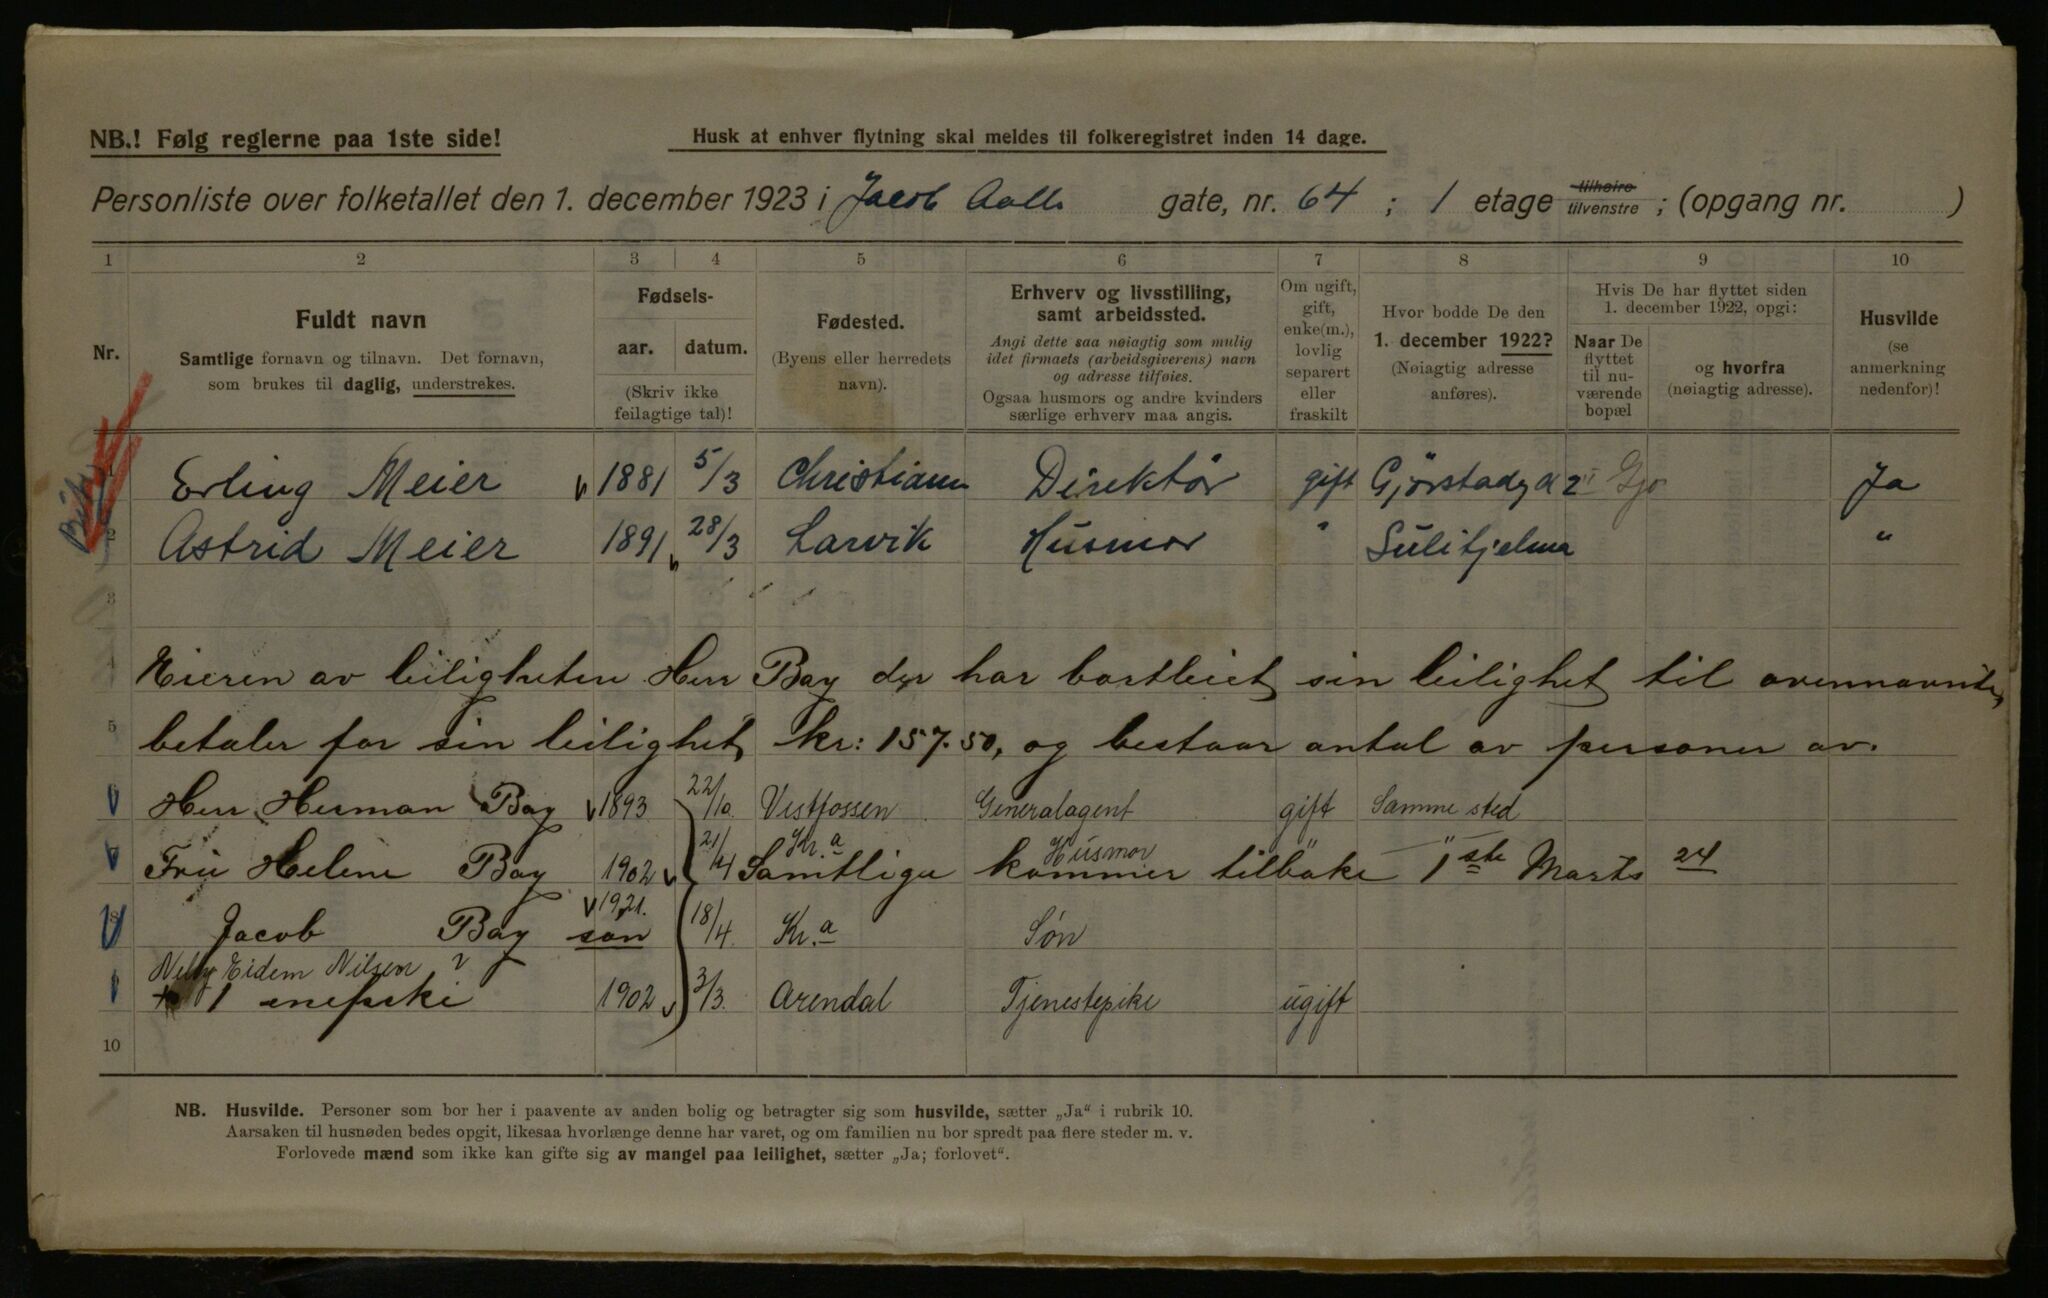 NB.! Følg reglerne paa 1ste side!
Husk at enhver flytning skal meldes til folkeregistret inden 14 dage.
Personliste over folketallet den 1. december 1923 i Jacob Aalls gate, nr. 64 ; 1 etage tilhøire tilvenstre ; (opgang nr. )
1 2 3 4 5 6 7 8 9 10
Nr.
Fuldt navn
Samtlige fornavn og tilnavn. Det fornavn,
som brukes til daglig, understrekes.
Fødsels-
aar. datum.
(Skriv ikke
feilagtige tal)!
Fødested.
(Byens eller herredets
navn).
Erhverv og livsstilling,
samt arbeidssted.
Angi dette saa nøiagtig som mulig
idet firmaets (arbeidsgiverens) navn
og adresse tilføies.
Ogsaa husmors og andre kvinders
særlige erhverv maa angis.
Om ugift,
gift,
enke(m.),
lovlig
separert
eller
fraskilt
Hvor bodde De den
1. december 1922?
(Nøiagtig adresse
anføres).
Hvis De har flyttet siden
1. december 1922, opgi:
Naar De
flyttet
til nu-
værende
bopæl
og hvorfra
(nøiagtig adresse).
Husvilde
(se
anmerkning
nedenfor)!
1 Erling Meier 1881 5/3 Christiania Direktør gift Gjørstadg 2 Ja
2 Astrid Meier 1891 28/3 Larvik Husmor " Sulitjelma "
3
4 Eieren av leiligheten Herr Bay der har bortleiet sin leilighet til ovennævnte,
5 betaler for sin leilighet kr: 157.50, og bestaar antal av personer av.
6 Herr Herman Bay 1893 22/10. Vestfossen Generalagent gift Samme sted
Kr.a Husmor " "
7 Fru Helene Bay 1902 21/4 Samtlige kommer tilbake 1ste Marts 24
1921.
8 Jacob Bay søn 18/4. Kr.a Søn
Nelly Eidem Nilsen
+ 1 enepike 1902 3/3. Arendal Tjenestepike ugift
10
NB. Husvilde. Personer som bor her i paavente av anden bolig og betragter sig som husvilde, sætter „Ja“ i rubrik 10.
Aarsaken til husnøden bedes opgit, likesaa hvorlænge denne har varet, og om familien nu bor spredt paa flere steder m. v.
Forlovede mænd som ikke kan gifte sig av mangel paa leilighet, sætter „Ja; forlovet“.